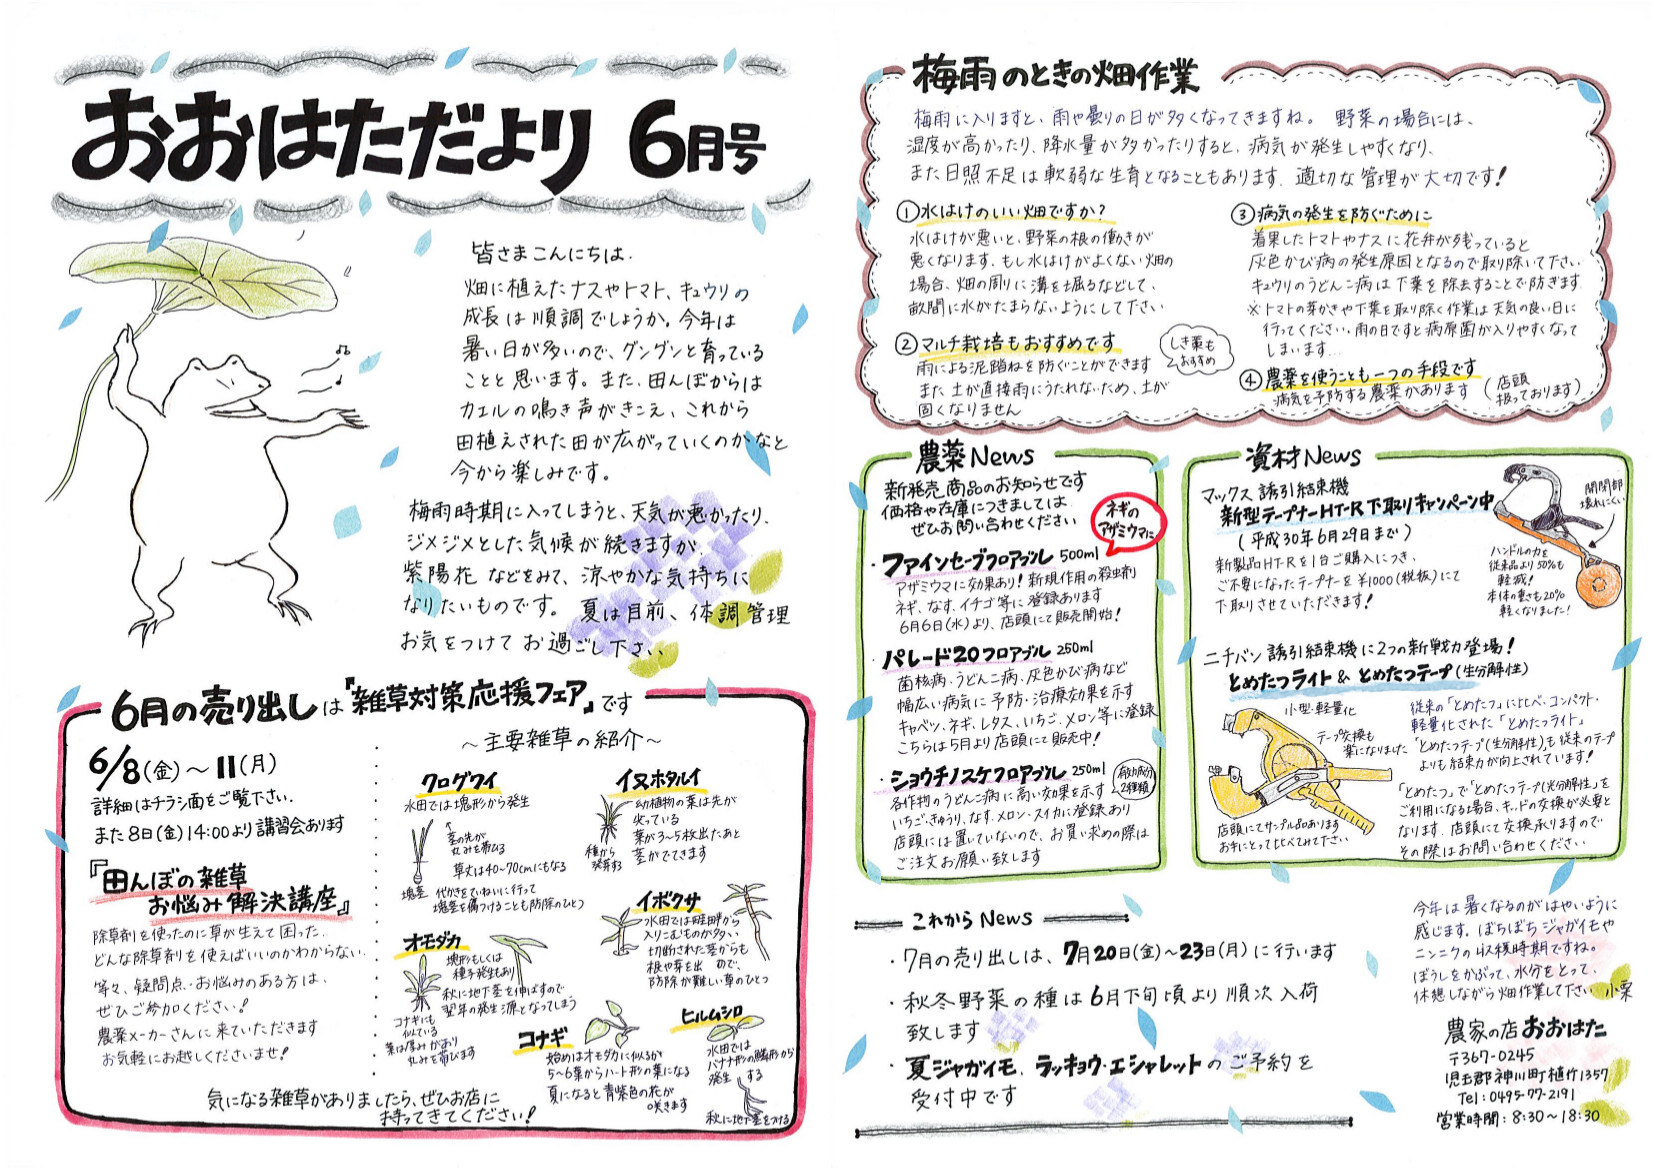 おおはただより 6月号
皆さまこんにちは.
畑に植えたナスやトマト、キュウリの
成長は順調でしょうか。今年は
暑い日が多いので、グングンと育っている
ことと思います。また、田んぼからは
カエルの鳴き声がきこえ、これから
田植えされた田が広がっていくのかなと
今から楽しみです。
梅雨時期に入ってしまうと、天気が悪かったり、
ジメジメとした気候が続きますが、
紫陽花などをみて、涼やかな気持ちに
なりたいものです。夏は目前、体調管理
お気をつけてお過ごし下さい
6月の売り出しは『雑草対策応援フェア』です
6/8(金)〜11(月)
詳細はチラシ面をご覧下さい.
また8日(金)14:00より講習会あります
『田んぼの雑草
お悩み解決講座』
除草剤を使ったのに草が生えて困った.
どんな除草剤を使えばいいのかわからない.
等々、疑問点・お悩みのある方は、
ぜひご参加ください!
農薬メーカーさんに来ていただきます
お気軽にお越しくださいませ!
〜主要雑草の紹介〜
クログワイ
水田では塊形から発生
茎の先が
丸みを帯びる
草丈は40~70cmにもなる
塊茎
代かきをていねいに行って
塊茎を傷つけることも防除のひとつ
イヌホタルイ
幼植物の葉は先が
尖っている
葉が3~5枚出たあと
茎がでてきます
種から
発芽する
オモダカ
塊形もしくは
種子発生もあり
秋に地下茎を伸ばすので
翌年の発生源となってしまう
コナギにも
似ている
葉は厚みがあり
丸みを帯びます
イボクサ
水田では畦畔から
入りこむものが多い
切断された茎からも
根や芽を出 ので、
防除が難しい草のひとつ
コナギ
始めはオモダカに似るが
5~6葉からハート形の葉になる
夏になると青紫色の花が
咲きます
ヒルムシロ
水田では
バナナ形の鱗形から
発生 する
秋に地下茎をつける
気になる雑草がありましたら、ぜひお店に
持ってきてください!
梅雨のときの畑作業
梅雨に入りますと、雨や曇りの日が多くなってきますね。野菜の場合には、
湿度が高かったり、降水量が多かったりすると、病気が発生しやすくなり、
また日照不足は軟弱な生育となることもあります. 適切な管理が大切です!
①水はけのいい畑ですか?
水はけが悪いと、野菜の根の働きが
悪くなります.もし水はけがよくない畑の
場合、畑の周りに溝を堀るなどして、
畝間に水がたまらないようにして下さい
②マルチ栽培もおすすめです
雨による泥跳ねを防ぐことができます
また土が直接雨にうたれないため、土が
固くなりません
しき藁も
おすすめ
③病気の発生を防ぐために
着果したトマトやナスに花弁が残っていると
灰色かび病の発生原因となるので取り除いて下さい
キュウリのうどんこ病は下葉を除去することで防ぎます
※トマトの芽かきや下葉を取り除く作業は天気の良い日に
行ってください.雨の日ですと病原菌が入りやすくなって
しまいます…
④農薬を使うことも一つの手段です
病気を予防する農薬があります
(店頭
扱っております)
農薬News
新発売商品のお知らせです
価格や在庫につきましては
ぜひお問い合わせください
ネギの
アザミウマに
・ファインセーブフロアブル 500ml
アザミウマに効果あり!新規作用の殺虫剤
ネギ、なす、イチゴ等に登録あります
6月6日(水)より、店頭にて販売開始!
・パレード20フロアブル 250ml
菌核病・うどんこ病、灰色かび病など
幅広い病気に予防・治療効果を示す
キャベツ、ネギ、レタス、いちご、メロン等に登録
こちらは5月より店頭にて販売中!
・ショウチノスケフロアブル 250ml
有効成分
2種類
各作物のうどんこ病に高い効果を示す
いちご、きゅうり、なす、メロン・スイカに登録あり
店頭には置いていないので、お買い求めの際は
ご注文お願い致します
資材News
マックス 誘引結束機
新型テープナーHT-R下取りキャンペーン中
(平成30年6月29日まで)
新製品HT-Rを1台ご購入につき、
ご不要になったテープナーを¥1000(税抜)にて
下取りさせていただきます!
開閉部
壊れにくい
ハンドルの力を
従来品より50%も
軽減!
本体の重さも20%
軽くなりました!
ニチバン 誘引結束機に2つの新戦力登場!
とめたつライト & とめたつテープ(生分解性)
小型・軽量化
テープ交換も
楽になりました
従来の「とめたつ」に比べ・コンパクト・
軽量化された「とめたつライト」
「とめたつテープ(生分解性)」も従来のテープ
よりも結束力が向上されています!
「とめたつ」で「とめたつテープ(光分解性)」を
ご利用になる場合、キッドの交換が必要と
なります.店頭にて交換承りますので
その際はお問い合わせください
店頭にてサンプル品あります
お手にとって比べてみて下さい
これからNews
・7月の売り出しは、7月20日(金)~23日(月)に行います
・秋冬野菜の種は6月下旬頃より順次入荷
致します
・夏ジャガイモ、ラッキョウ・エシャレットのご予約を
受付中です
今年は暑くなるのがはやいように
感じます。ぼちぼちジャガイモや
ニンニクの収穫時期ですね。
ぼうしをかぶって、水分をとって、
休憩しながら畑作業して下さい 小栗
農家の店おおはた
〒367-0245
児玉郡神川町植竹1357
Tel:0495-77-2191
営業時間:8:30~18:30